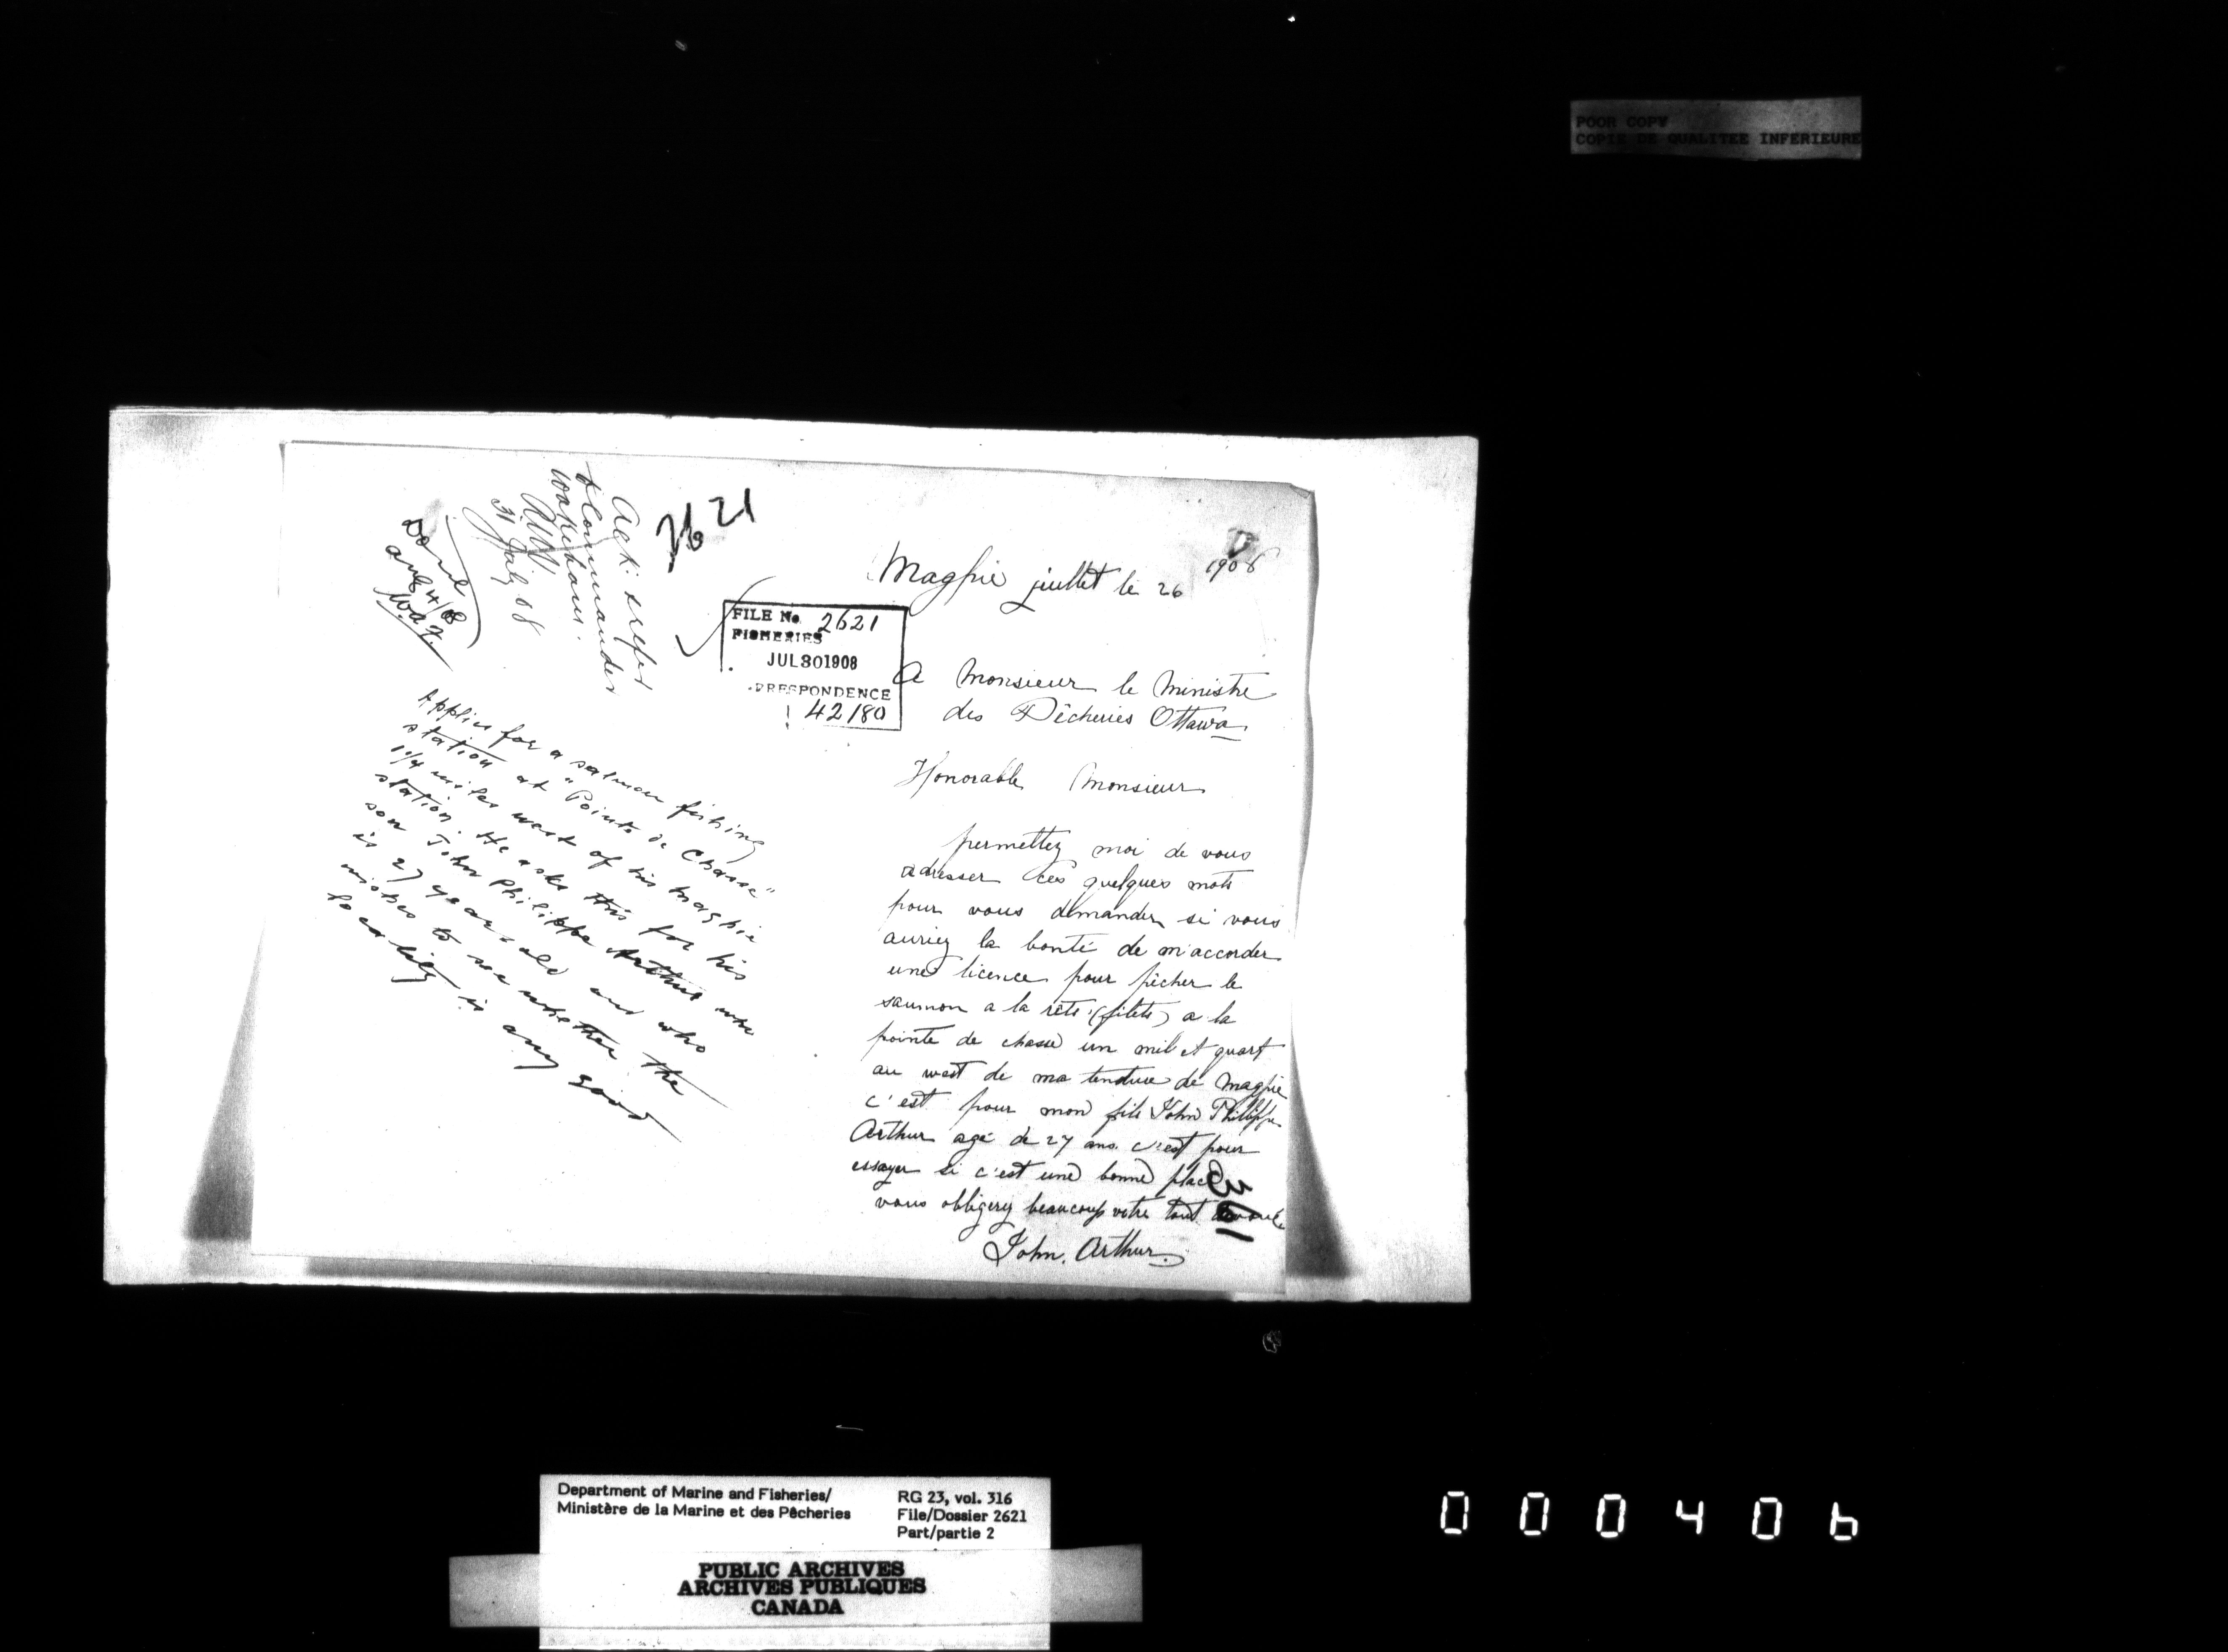 POOR COPY
COPIE DE QUALITEE INFERIEURE
2621
Ack: & refer
to Commander
Wakeham.
31 July 08
Done
Aug 4/8
FILE No. 2621
FISHERIES
JUL 30 1908
RRESPONDENCE
42180
Applies for a salmon fishing
station at "Pointe de Chasse"
1 1/4 miles west of his magpie
station. He asks this for his
son John Philippe Arthur who
is 27 years old and who
wishes to see whether the
locality is any good
Magpie juillet le 26 1908
A Monsieur le Ministre
des Pêcheries Ottawa
Honorable Monsieur
permettez moi de vous
adresser ces quelques mots
pour vous demander si vous
auriez la bonté de m'accorder
une licence pour pêcher le
saumon a la rets (filets) a la
pointe de chasse un mil et quart
au west de ma tenture de Magpie
c'est pour mon fils John Philippe
Arthur agé de 27 ans. c'est pour
essayer si c'est une bonne place
vous obligerez beaucoup votre tout devoué
John. Arthur.
361
Department of Marine and Fisheries/
Ministère de la Marine et des Pêcheries
RG 23, vol. 316
File/Dossier 2621
Part/partie 2
PUBLIC ARCHIVES
ARCHIVES PUBLIQUES
CANADA
000406